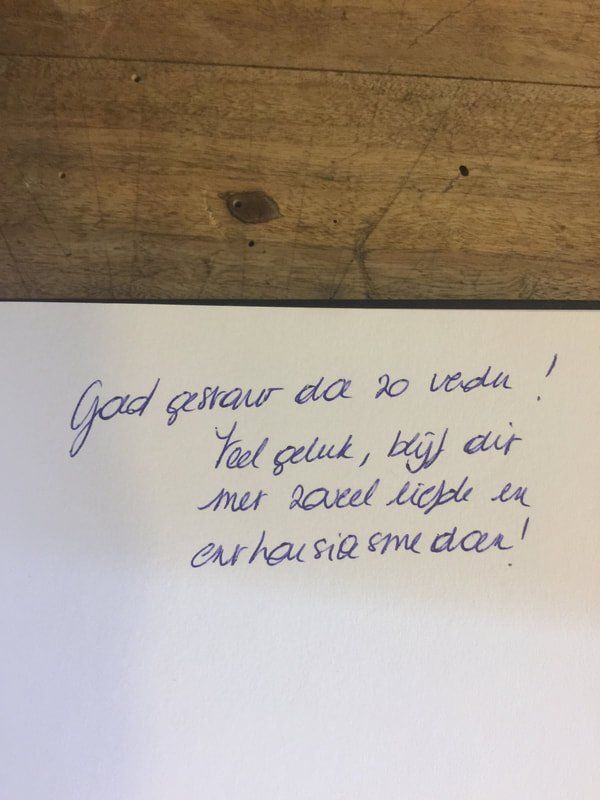 Goed gestart doe zo verder!
Veel geluk, blijf dit
met zoveel liefde en
enthousiasme doen!